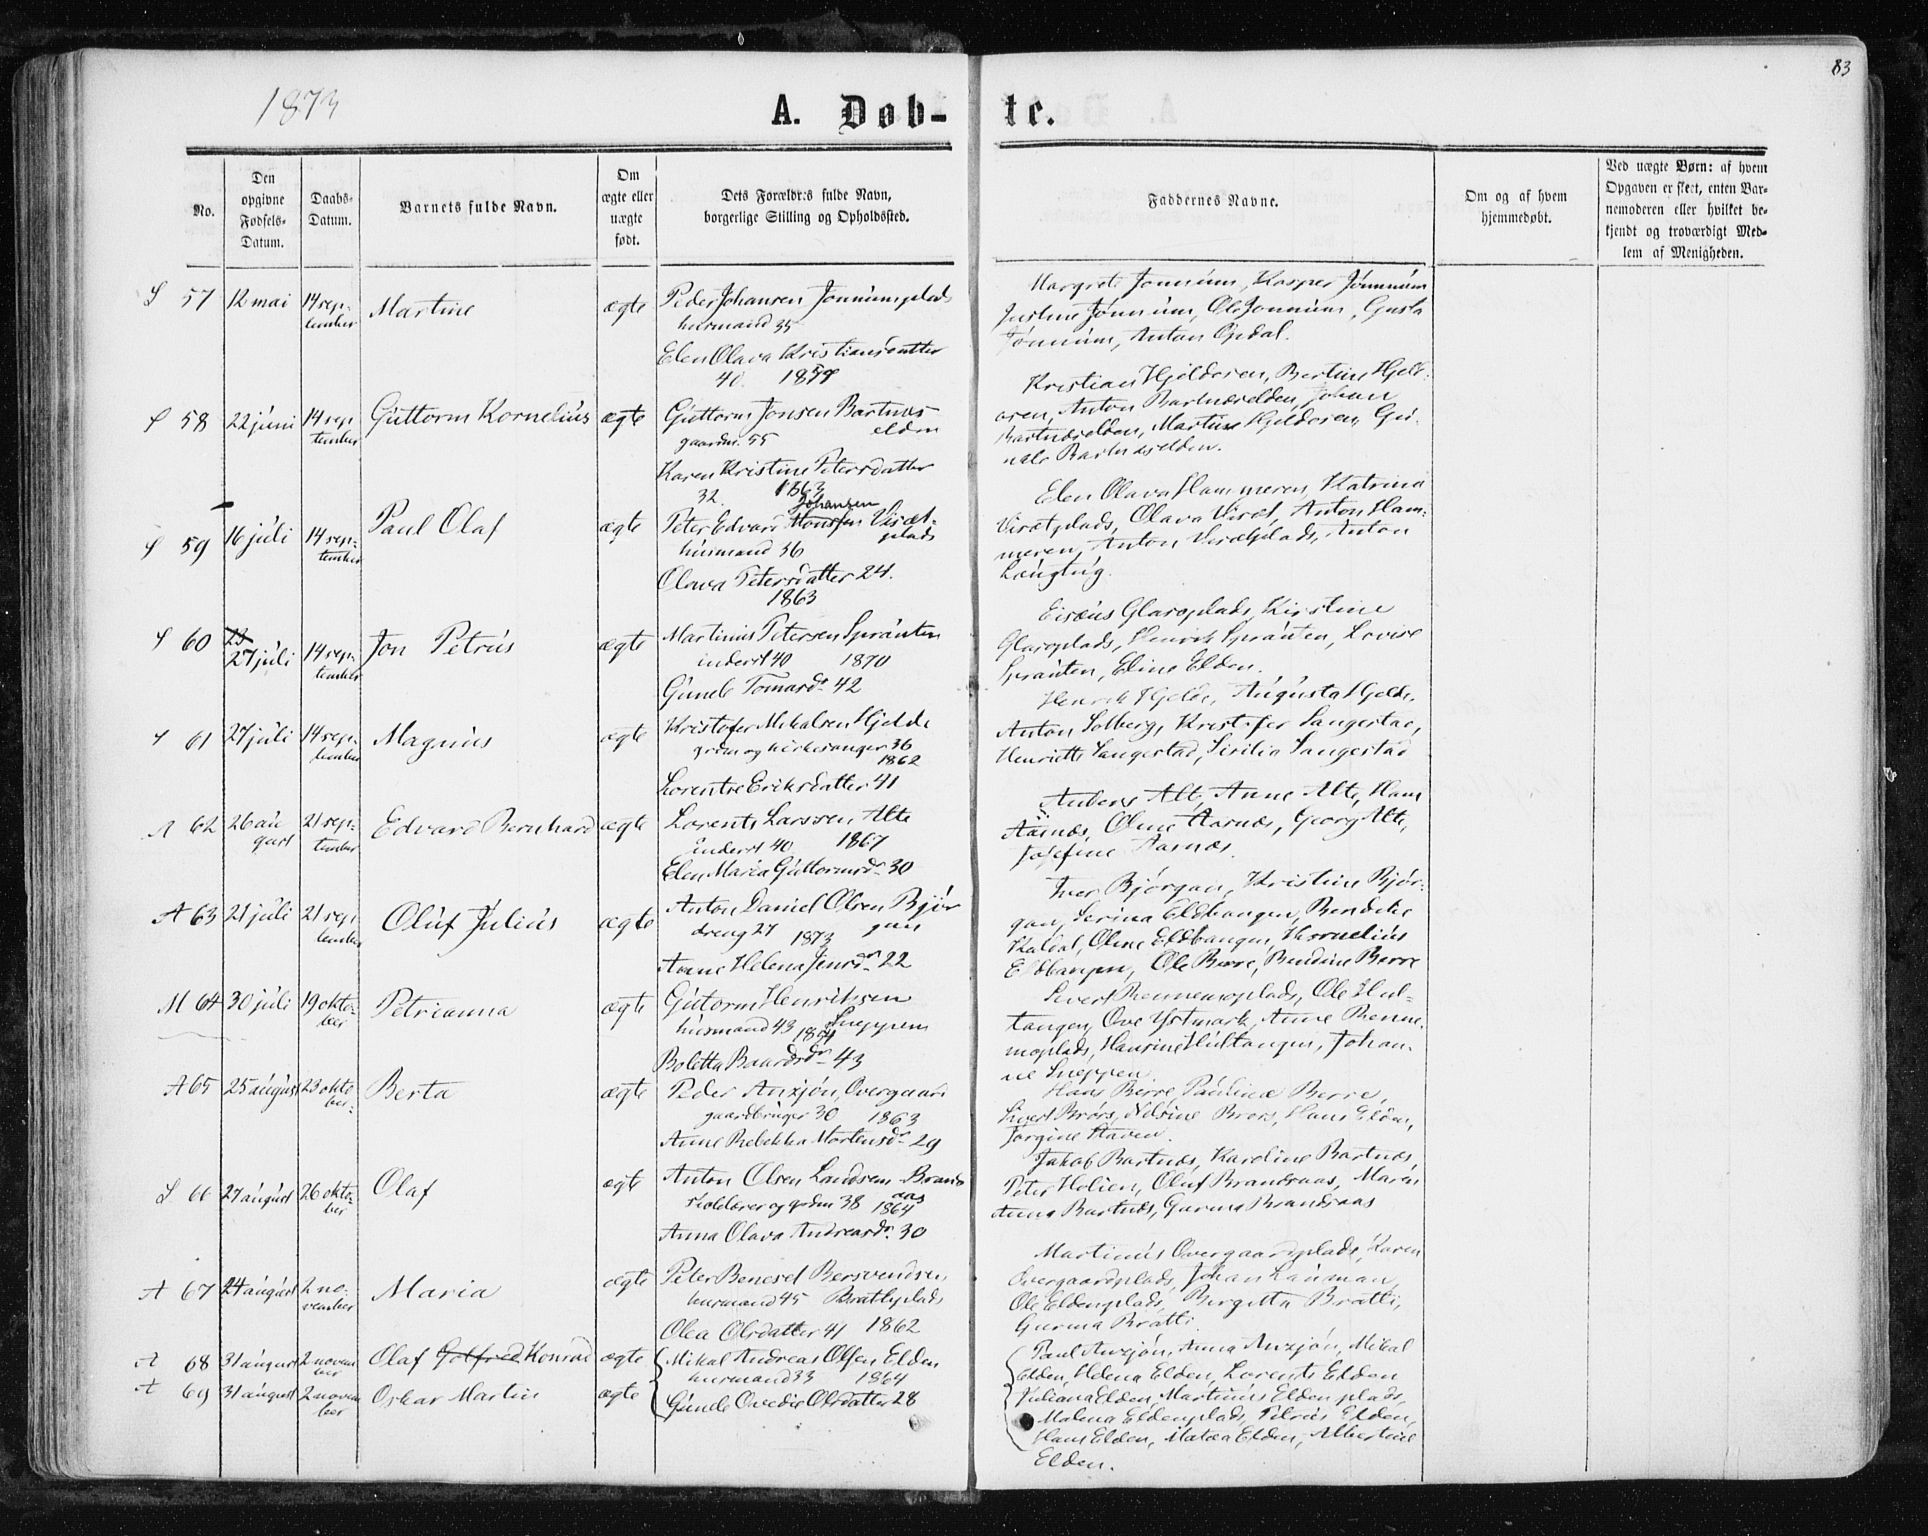 1873
A. Døb-
te.
83
No.
Den
opgivne
Fødsels-
Datum.
Daabs-
Datum.
Barnets fulde Navn.
Om
ægte eller
uægte
født.
Dets Forældres fulde Navn,
borgerlige Stilling og Opholdssted.
Faddernes Navne.
Om og af hvem
hjemmedøbt.
Ved uægte Børn: af hvem
Opgaven er skeet, enten Bar-
nemoderen eller hvilket be-
kjendt og troværdigt Med-
lem af Menigheden.
S 57 12 mai 14 sep-
tember
Martine ægte
Peder Johansen Jönnumsplads
husmand 35
Elen Olava Kristiansdatter
40
Margrete Jönnum, Kasper Jönnum
Justine Jönnum, Ole Jönnum, Gusta
Jönnum, Anton Opdal.
S 58 22 juni 14 sep
tember
Guttorm Kornelius ægte
Guttorm Jonsen Bartnæs-
elden
gaardm. 55
Karen Kristine Petersdatter
32 1863
Kristian Hjeldosen, Bertine Hjeld-
osen, Anton Bartnæselden, Johan
Bartnæselden, Martine Hjeldosen, Gu-
nele Bartnæselden.
S 59 16 juli 14 sep-
tember
Paul Olaf ægte
Johansen
Peter Edvard Monssen Viset-
plads
husmand 36
Olava Petersdatter 24.
1863
Elen Olava Hammeren, Katrina
Visetplads, Olava Viset, Anton Ham-
meren, Anton Visetplads, Anton
Længtug.
S 60 23
27 juli 14 sep-
tember
Jon Petrus ægte
Martinus Petersen Spranten
inderst 40 1870
Gunele Tomasdr. 42
Eiseus Glasoplads, Kirstine
Glasoplads, Henrik Spranten, Lovise
Spranten, Eline Elden.
S 61 27 juli 14 sep-
tember
Magnus ægte
Kristofer Mikalsen Hjelde
grdm og kirkesanger 36
1862
Lorentse Eriksdatter 41
Henrik Hjelde, Augusta Hjelde,
Anton Solberg, Kristofer Langestad,
Henriette Langestad, Sirilia Langestad
A 62 26 au
gust 21 sep-
tember
Edvard Bernhard ægte
Lorents Larssen Alte
inderst 40 1867
Elen Maria Guttormsdr. 30
Anders Alte, Anne Alte, Hans
Aasnæs, Oline Aasnæs, Georg Alte,
Josefine Aasnæs.
A 63 21 juli 21 sep
tember
Oluf Julius ægte
Anton Daniel Olsen Björ
gan
dreng 27 1873
Anne Helena Jensdr. 22
Iver Björgan, Kristine Björ-
gan, Serina Eldbangen, Bendike
Kaldal, Oline Eldbangen, Kornelius
Eldbangen, Ole Berre, Bendine Berre
M 64 30 juli 19 okto-
ber
Petrianna ægte
Guttorm Henriksen
Sneppen
husmand 43
Boletta Baardsdr. 43
Sivert Rennemoplads, Ole Hul-
tangen, Ove Ystmark, Anne Renne-
moplads, Hansine Hultangen, Johan-
ne Sneppen
A 65 25 august 23 okto
ber
Berta ægte
Peder Anzjön, Overgaard
gaardbruger 30 1863
Anne Rebekka Mortensdr. 29
Hans Berre, Pauline Berre,
Sivert Brörs, Nelsine Brörs, Hans Elden,
Jörgine Staven.
S 66 27 august 26 okto-
ber
Olaf ægt
Anton Olsen Landsem Brands
aas
skolelærer og grdm 38 1864
Anna Olava Andreasdr. 30
Jakob Bartnæs, Karoline Bartnæs,
Peter Holien, Oluf Brandsaas, Maren
Anna Bartnæs, Gurina Brandsaas
A 67 24 august 2 no-
vember
Maria ægte
Peter Benesel Bersvendsen
husmand 45 Bratliplads
Olea Olsdatter 41 1862
Martinus Overgaardsplads, Karen
Overgaardsplads, Johan Lauman,
Ole Eldenplads, Bergitta Bratli,
Gurina Bratli
A 68 31 august 2 novem
ber
Olaf Gotfred Konrad ægte
Mikal Andreas Olsen Elden
husmand 33 1864
A 69 31 august 2 novem
ber
Oskar Martin ægte
Gunele Ovedie Olsdatter 28
Paul Anzjön, Anna Anzjön, Mikal
Elden, Helena Elden, Lorents Elden
Juliana Elden, Martinus Eldenplads,
Malena Eldenplads, Petrus Elden,
Hans Elden, Matea Elden, Albertine
Elden.